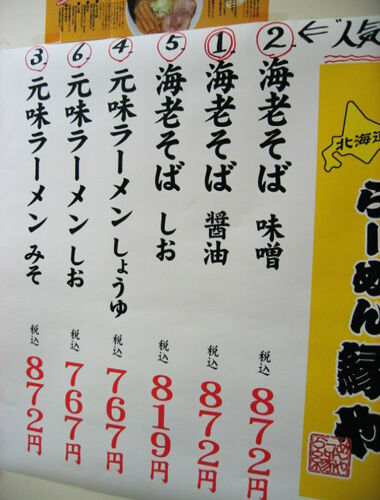 北海道
らーめん縁や
←"人気
② 海老そば 味噌 税込 872円
① 海老そば 醤油 税込 872円
⑤ 海老そば しお 税込 819円
④ 元味ラーメン しょうゆ 税込 767円
⑥ 元味ラーメン しお 税込 767円
③ 元味ラーメン みそ 税込 872円